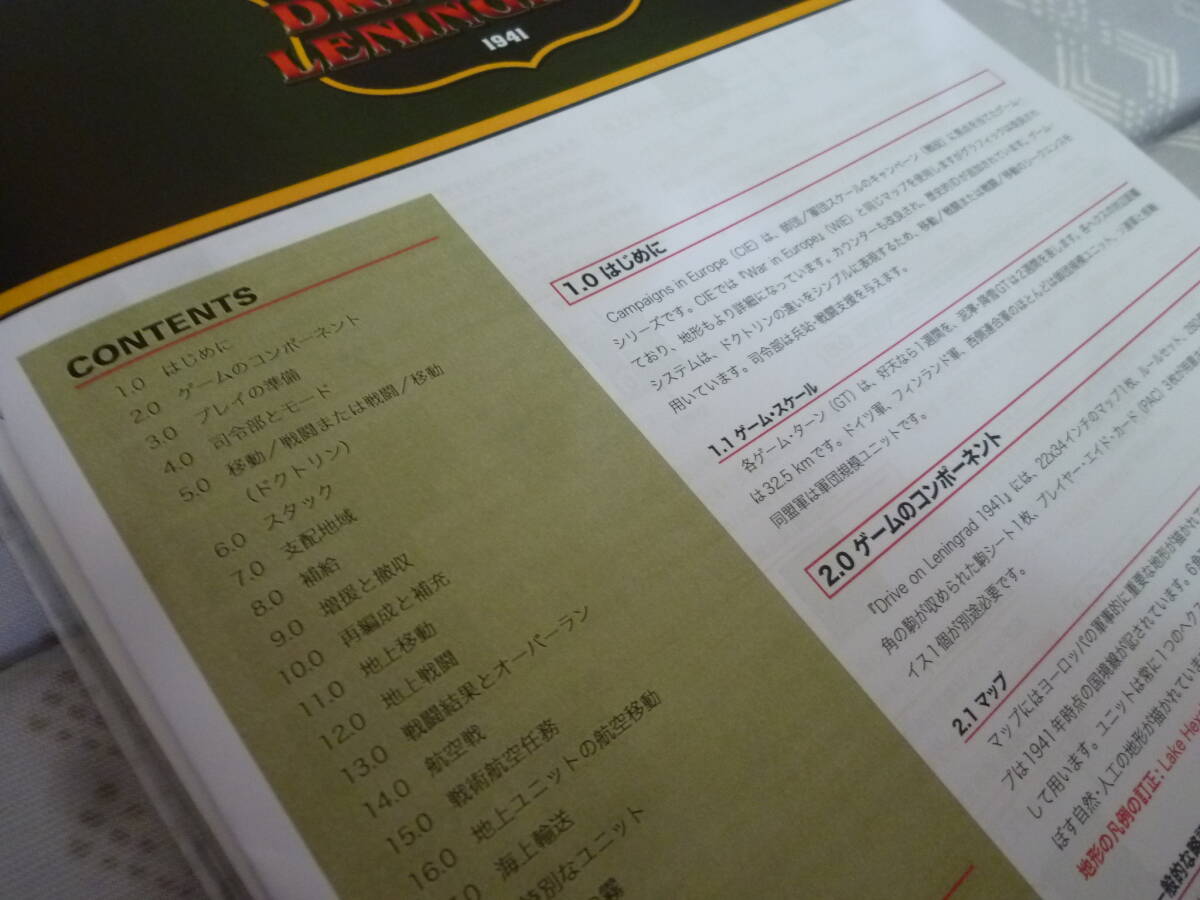 LENING
1941
CONTENTS
1.0 はじめに
2.0 ゲームのコンポーネント
3.0 プレイの準備
4.0 司令部とモード
5.0 移動／戦闘または戦闘／移動
（ドクトリン）
6.0 スタック
7.0 支配地域
8.0 補給
9.0 増援と撤収
10.0 再編成と補充
11.0 地上移動
12.0 地上戦闘
13.0 戦闘結果とオーバーラン
14.0 航空戦
15.0 戦術航空任務
16.0 地上ユニットの航空移動
海上輸送
特別なユニット
1.0 はじめに
Campaigns in Europe（CIE）は、師団／軍団スケールのキャンペーン（戦役）に焦点を当てたゲーム・
シリーズです。CIEでは『War in Europe』（WIE）と同じマップを使用しますがグラフィックは改良され
ており、地形もより詳細になっています。カウンターも改良され、歴史的IDが追加されています。ゲーム・
システムは、ドクトリンの違いをシンプルに表現するため、移動／戦闘または戦闘／移動のシークエンスを
用いています。司令部は兵站・戦闘支援を与えます。
1.1 ゲーム・スケール
各ゲーム・ターン（GT）は、好天なら1週間を、泥濘・降雪GTは2週間を表します。各ヘクスの対辺距離
は32.5 kmです。ドイツ軍、フィンランド軍、西側連合軍のほとんどは師団規模ユニット、ソ連軍と枢軸
同盟軍は軍団規模ユニットです。
2.0 ゲームのコンポーネント
『Drive on Leningrad 1941』には、22x34インチのマップ1枚、ルールセット、
角の駒が収められた駒シート1枚、プレイヤー・エイド・カード（PAC）3枚が
イス1個が別途必要です。
2.1 マップ
マップにはヨーロッパの軍事的に重要な地形が描かれ
プは1941年時点の国境線が記されています。6角
して用います。ユニットは常に1つのヘク
ぼす自然・人工の地形が描かれてい
地形の凡例の訂正：Lake He
一般的な略